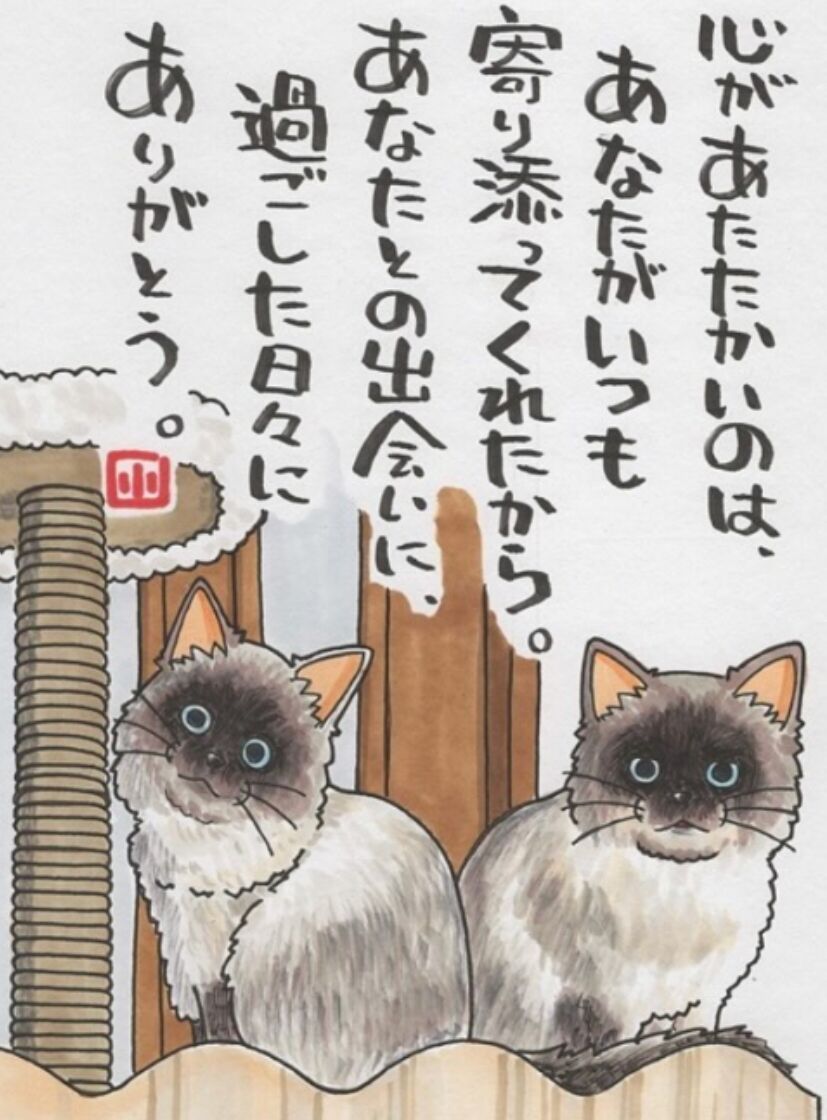 心があたたかいのは、
あなたがいつも
寄り添ってくれたから。
あなたとの出会いに、
過ごした日々に
ありがとう。
山